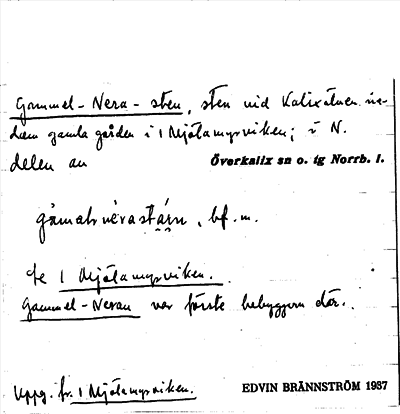 Gammel-Nera-sten, sten vid Kalixälven ne-
dom gamla gården i 1 Mjölamyrviken; i N.
delen av Överkalix sn o. tg Norrb. l.
gåmalnērastą́ṛn, bf. m.
Se 1 Mjölamyrviken.
Gammel-Neran var förste bebyggaren där.
Uppg. fr. 1 Mjölamyrviken. EDVIN BRÄNNSTRÖM 1937